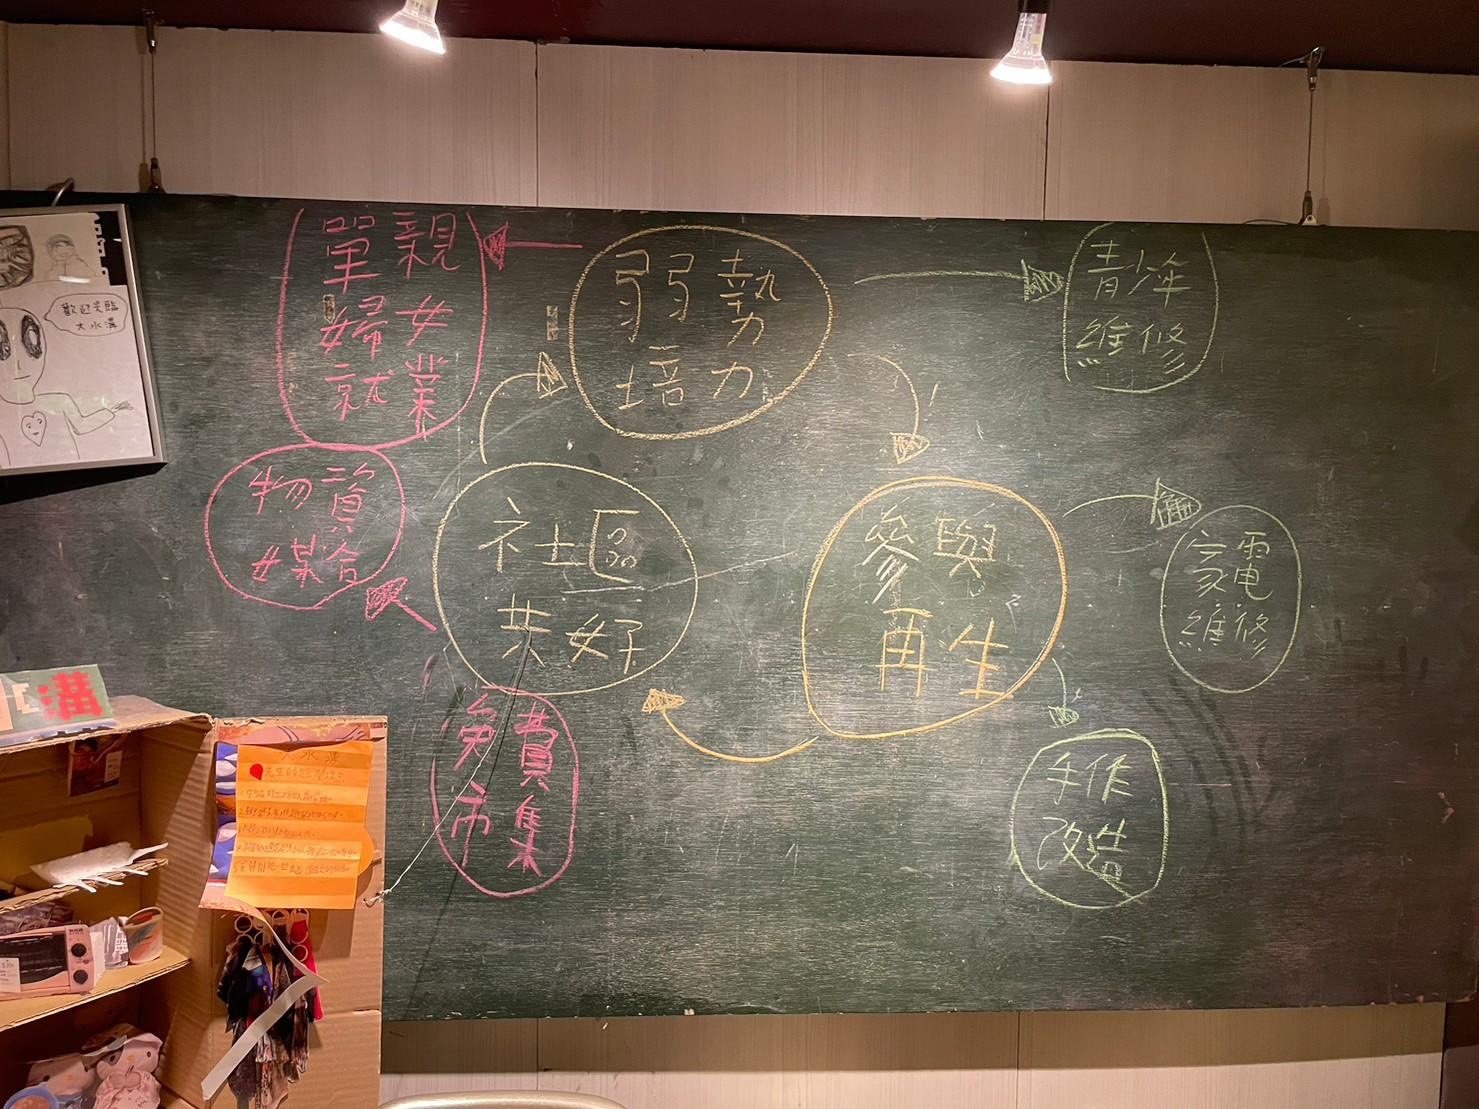 單親
婦女
就業
弱勢
培力
青少年
維修
歡迎光臨
大水溝
物資
媒合
社區
共好
參與
再生
家電
維修
免費
市集
手作
改造
溝
大水溝